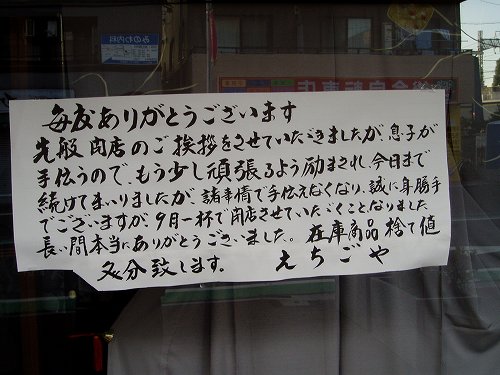 みのわ内科
毎度ありがとうございます
先般閉店のご挨拶をさせていただきましたが、息子が
手伝うので、もう少し頑張るよう励まされ、今日まで
続けてまいりましたが、諸事情で手伝えなくなり、誠に身勝手
でございますが、9月一杯で閉店させていただくことなりました
長い間本当にありがとうございました。在庫商品捨て値
処分致します。 えちごや